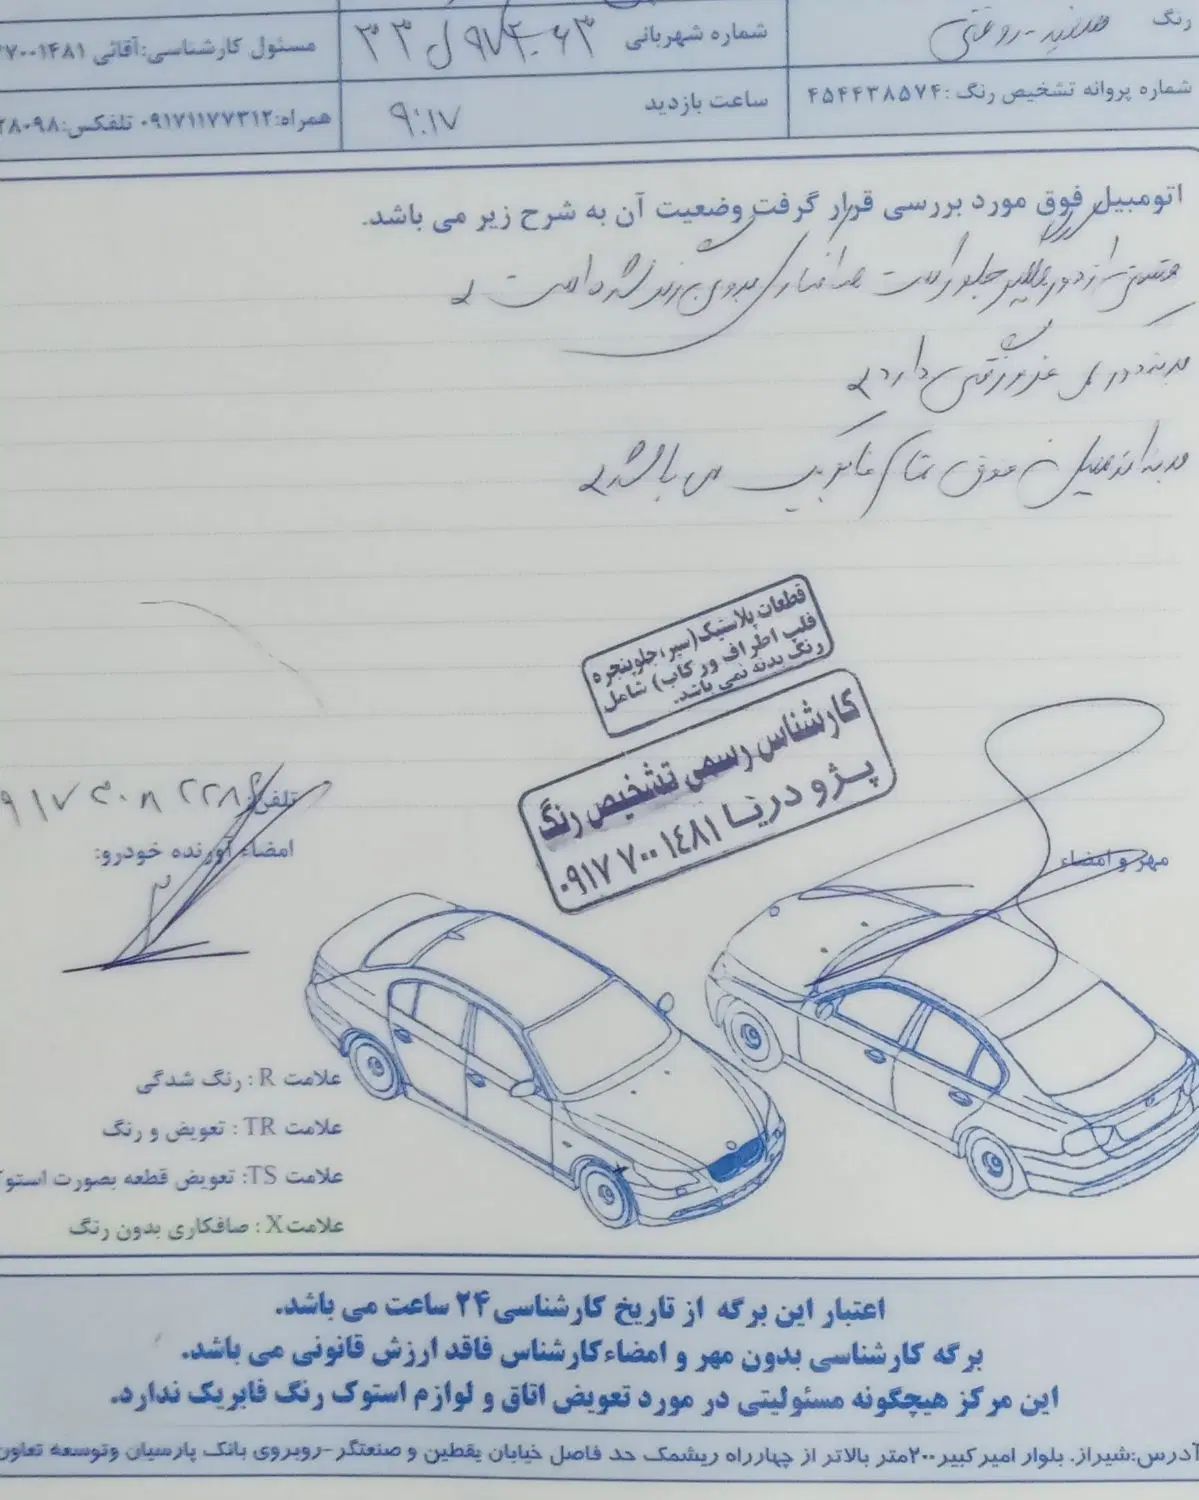 رنگ سفید - روغنی
شماره شهربانی ۶۳ - ۹۷۴ ل ۳۳
مسئول کارشناسی: آقائی ۷۷۰۰۱۴۸۱
شماره پروانه تشخیص رنگ: ۴۵۴۴۳۸۵۷۴
ساعت بازدید ۹:۱۷
همراه: ۰۹۱۷۱۱۷۷۳۱۲ تلفکس: ۲۸۰۹۸
اتومبیل فوق مورد بررسی قرار گرفت وضعیت آن به شرح زیر می باشد.
قسمتی از دور گلگیر جلو راست صافکاری بدون رنگ شده است
بدنه دور خط و خش دارد
بدنه اتومبیل فوق تمام فابریک می باشد
قطعات پلاستیک (سپر، جلوپنجره
قلپ اطراف ور کاب) شامل
رنگ بدنه نمی باشد.
کارشناس رسمی تشخیص رنگ
پژو درنا
۰۹۱۷ ۷۰۰ ۱۴۸۱
تلفن:
امضاء آورنده خودرو:
مهر و امضاء
علامت R : رنگ شدگی
علامت TR : تعویض و رنگ
علامت TS: تعویض قطعه بصورت استوک
علامت X : صافکاری بدون رنگ
اعتبار این برگه از تاریخ کارشناسی ۲۴ ساعت می باشد.
برگه کارشناسی بدون مهر و امضاء کارشناس فاقد ارزش قانونی می باشد.
این مرکز هیچگونه مسئولیتی در مورد تعویض اتاق و لوازم استوک رنگ فابریک ندارد.
آدرس: شیراز. بلوار امیر کبیر ۲۰۰ متر بالاتر از چهارراه ریشمک حد فاصل خیابان یقطین و صنعتگر - روبروی بانک پارسیان وتوسعه تعاون